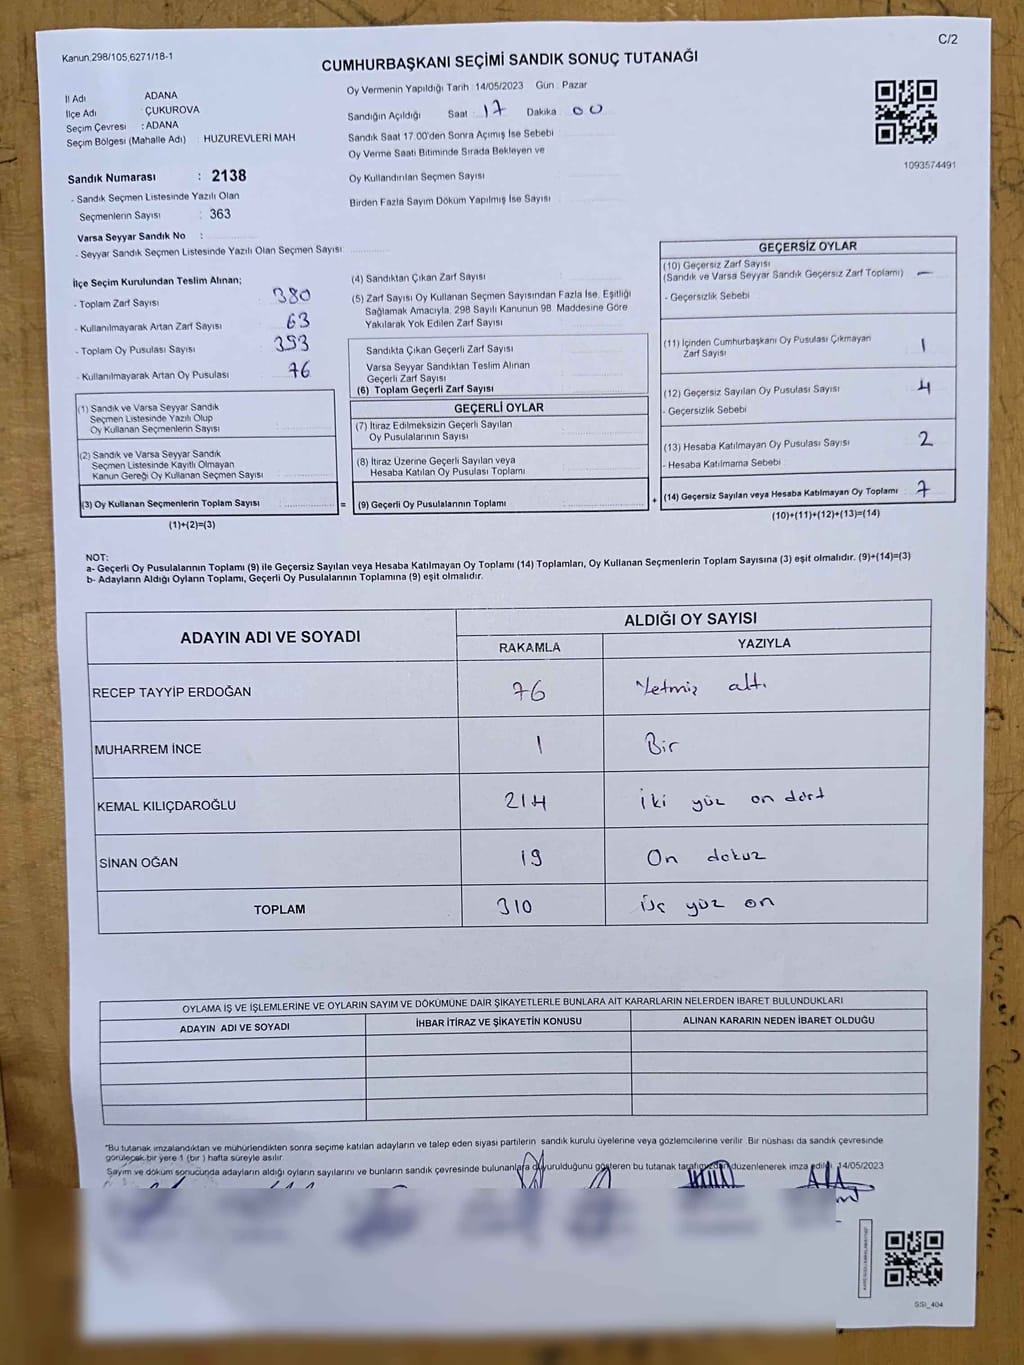 Kanun,298/105,6271/18-1
C/2
CUMHURBAŞKANI SEÇİMİ SANDIK SONUÇ TUTANAĞI
İl Adı ADANA
İlçe Adı : ÇUKUROVA
Seçim Çevresi : ADANA
Seçim Bölgesi (Mahalle Adı) : HUZUREVLERİ MAH
Oy Vermenin Yapıldığı Tarih : 14/05/2023 Gün : Pazar
Sandığın Açıldığı Saat : 17 Dakika : 00
Sandık Saat 17.00'den Sonra Açımış İse Sebebi
Oy Verme Saati Bitiminde Sırada Bekleyen ve
Oy Kullandırılan Seçmen Sayısı
Birden Fazla Sayım Döküm Yapılmış İse Sayısı
1093574491
Sandık Numarası : 2138
- Sandık Seçmen Listesinde Yazılı Olan
Seçmenlerin Sayısı : 363
Varsa Seyyar Sandık No :
- Seyyar Sandık Seçmen Listesinde Yazılı Olan Seçmen Sayısı:
İlçe Seçim Kurulundan Teslim Alınan;
- Toplam Zarf Sayısı 380
- Kullanılmayarak Artan Zarf Sayısı 63
- Toplam Oy Pusulası Sayısı 393
- Kullanılmayarak Artan Oy Pusulası 76
(1) Sandık ve Varsa Seyyar Sandık
Seçmen Listesinde Yazılı Olup
Oy Kullanan Seçmenlerin Sayısı
(2) Sandık ve Varsa Seyyar Sandık
Seçmen Listesinde Kayıtlı Olmayan
Kanun Gereği Oy Kullanan Seçmen Sayısı
(3) Oy Kullanan Seçmenlerin Toplam Sayısı =
(1)+(2)=(3)
(4) Sandıktan Çıkan Zarf Sayısı
(5) Zarf Sayısı Oy Kullanan Seçmen Sayısından Fazla İse, Eşitliği
Sağlamak Amacıyla, 298 Sayılı Kanunun 98. Maddesine Göre
Yakılarak Yok Edilen Zarf Sayısı
Sandıkta Çıkan Geçerli Zarf Sayısı
Varsa Seyyar Sandıktan Teslim Alınan
Geçerli Zarf Sayısı
(6) Toplam Geçerli Zarf Sayısı
GEÇERLİ OYLAR
(7) İtiraz Edilmeksizin Geçerli Sayılan
Oy Pusulalarının Sayısı
(8) İtiraz Üzerine Geçerli Sayılan veya
Hesaba Katılan Oy Pusulası Toplamı
(9) Geçerli Oy Pusulalarının Toplamı +
GEÇERSİZ OYLAR
(10) Geçersiz Zarf Sayısı
(Sandık ve Varsa Seyyar Sandık Geçersiz Zarf Toplamı) —
- Geçersizlik Sebebi
(11) İçinden Cumhurbaşkanı Oy Pusulası Çıkmayan
Zarf Sayısı 1
(12) Geçersiz Sayılan Oy Pusulası Sayısı 4
- Geçersizlik Sebebi
(13) Hesaba Katılmayan Oy Pusulası Sayısı 2
- Hesaba Katılmama Sebebi
(14) Geçersiz Sayılan veya Hesaba Katılmayan Oy Toplamı : 7
(10)+(11)+(12)+(13)=(14)
NOT:
a- Geçerli Oy Pusulalarının Toplamı (9) ile Geçersiz Sayılan veya Hesaba Katılmayan Oy Toplamı (14) Toplamları, Oy Kullanan Seçmenlerin Toplam Sayısına (3) eşit olmalıdır. (9)+(14)=(3)
b- Adayların Aldığı Oyların Toplamı, Geçerli Oy Pusulalarının Toplamına (9) eşit olmalıdır.
ADAYIN ADI VE SOYADI ALDIĞI OY SAYISI
RAKAMLA YAZIYLA
RECEP TAYYİP ERDOĞAN 76 Yetmiş altı
MUHARREM İNCE 1 Bir
KEMAL KILIÇDAROĞLU 214 iki yüz on dört
SİNAN OĞAN 19 On dokuz
TOPLAM 310 üç yüz on
OYLAMA İŞ VE İŞLEMLERİNE VE OYLARIN SAYIM VE DÖKÜMÜNE DAİR ŞİKAYETLERLE BUNLARA AİT KARARLARIN NELERDEN İBARET BULUNDUKLARI
ADAYIN ADI VE SOYADI İHBAR İTİRAZ VE ŞİKAYETİN KONUSU ALINAN KARARIN NEDEN İBARET OLDUĞU
"Bu tutanak imzalandıktan ve mühürlendikten sonra seçime katılan adayların ve talep eden siyasi partilerin sandık kurulu üyelerine veya gözlemcilerine verilir. Bir nüshası da sandık çevresinde
görülecek bir yere 1 (bir) hafta süreyle asılır.
Sayım ve döküm sonucunda adayların aldığı oyların sayılarını ve bunların sandık çevresinde bulunanlara duyurulduğunu gösteren bu tutanak tarafımızdan düzenlenerek imza edildi. 14/05/2023
SSI_404